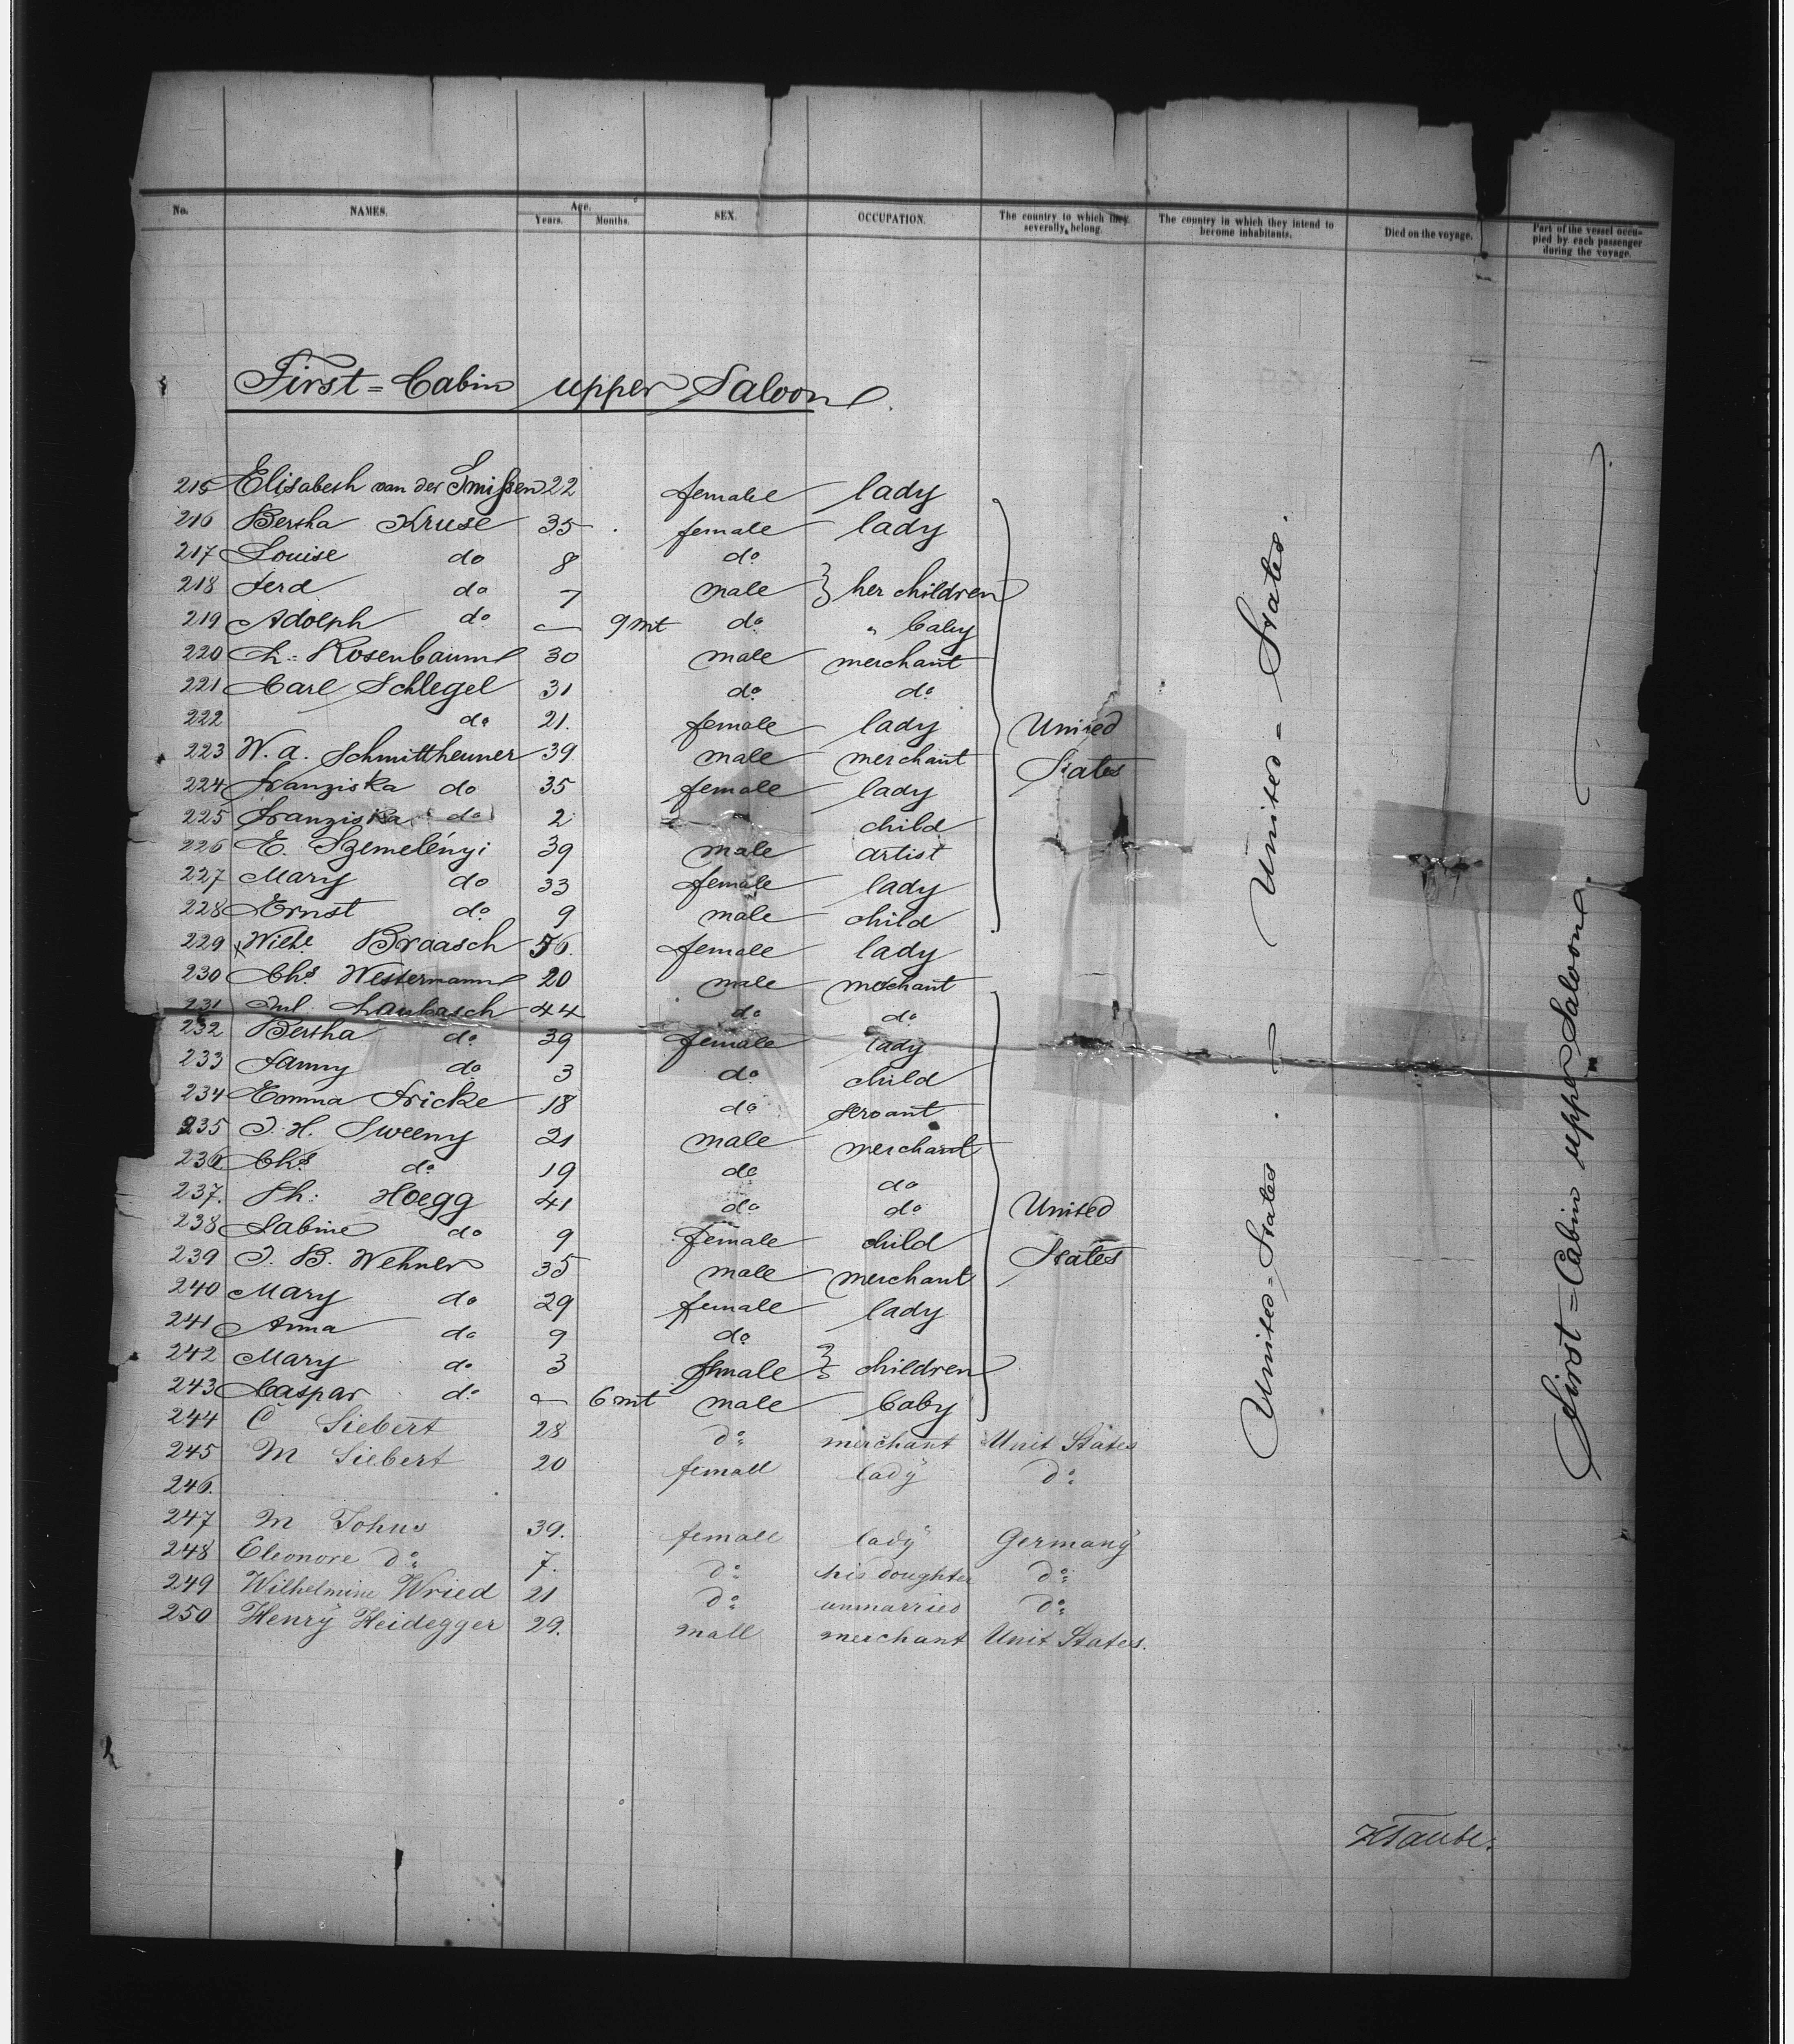 No. NAMES. Age. Years. Months. SEX. OCCUPATION. The country to which they severally belong. The country in which they intend to become inhabitants. Died on the voyage. Part of the vessel occupied by each passenger during the voyage.
First=Cabin upper Saloon.
215 Elisabeth van der Smissen 22 female lady
216 Bertha Kruse 35 female lady
217 Louise do 8 do
218 Ferd do 7 male } her children
219 Adolph do — 9 mt do " baby
220 L: Rosenbaum 30 male merchant
221 Carl Schlegel 31 do do
222 do 21. female lady United
223 W. A. Schmittheuner 39. male merchant States
224 Franziska do 35 female lady
225 Franziska do 2 do child
226 E. Szemelényi 39 male artist
227 Mary do 33 female lady
228 Ernst do 9 male child
229 Braasch 56. female lady
230 Chs Westermann 20 male merchant
231 Jul. Laubasch 44 do do
232 Bertha do 39 female lady
233 Fanny do 3 do child
234 Emma Fricke 18 do servant
235 J. H. Sweeny 21 male merchant
236 Chs do 19 do do
237. Ph: Hoegg 41 do do United
238 Sabine do 9 female child
239 J. B. Wehner 35 male merchant States
240 Mary do 29 female lady
241 Anna do 9 do
242 Mary do 3 female } children
243 Caspar do — 6 mt male baby
244 C Siebert 28 do merchant Unit States
245 M Siebert 20 femall lady do
246.
247 M Johns 39. femall lady Germany
248 Eleonore do 7. do his doughter do
249 Wilhelmine Wried 21 do unmarried do
250 Henry Heidegger 29. mall merchant Unit States.
United = States.
United = States
First = Cabin upper Saloon